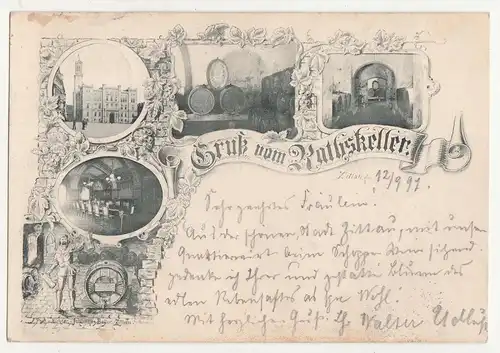 Gruß vom Rathskeller
Zittau, 12/9 97.
Sehr geehrtes Fräulein!
Aus der schönen Stadt Zittau, mit unserm
Quartierwirt beim Schoppen Wein sitzend
gedenke ich Ihrer und
edlen Rebensaftes auf Ihr Wohl!
Mit herzlichem Gruß Ihr Walter